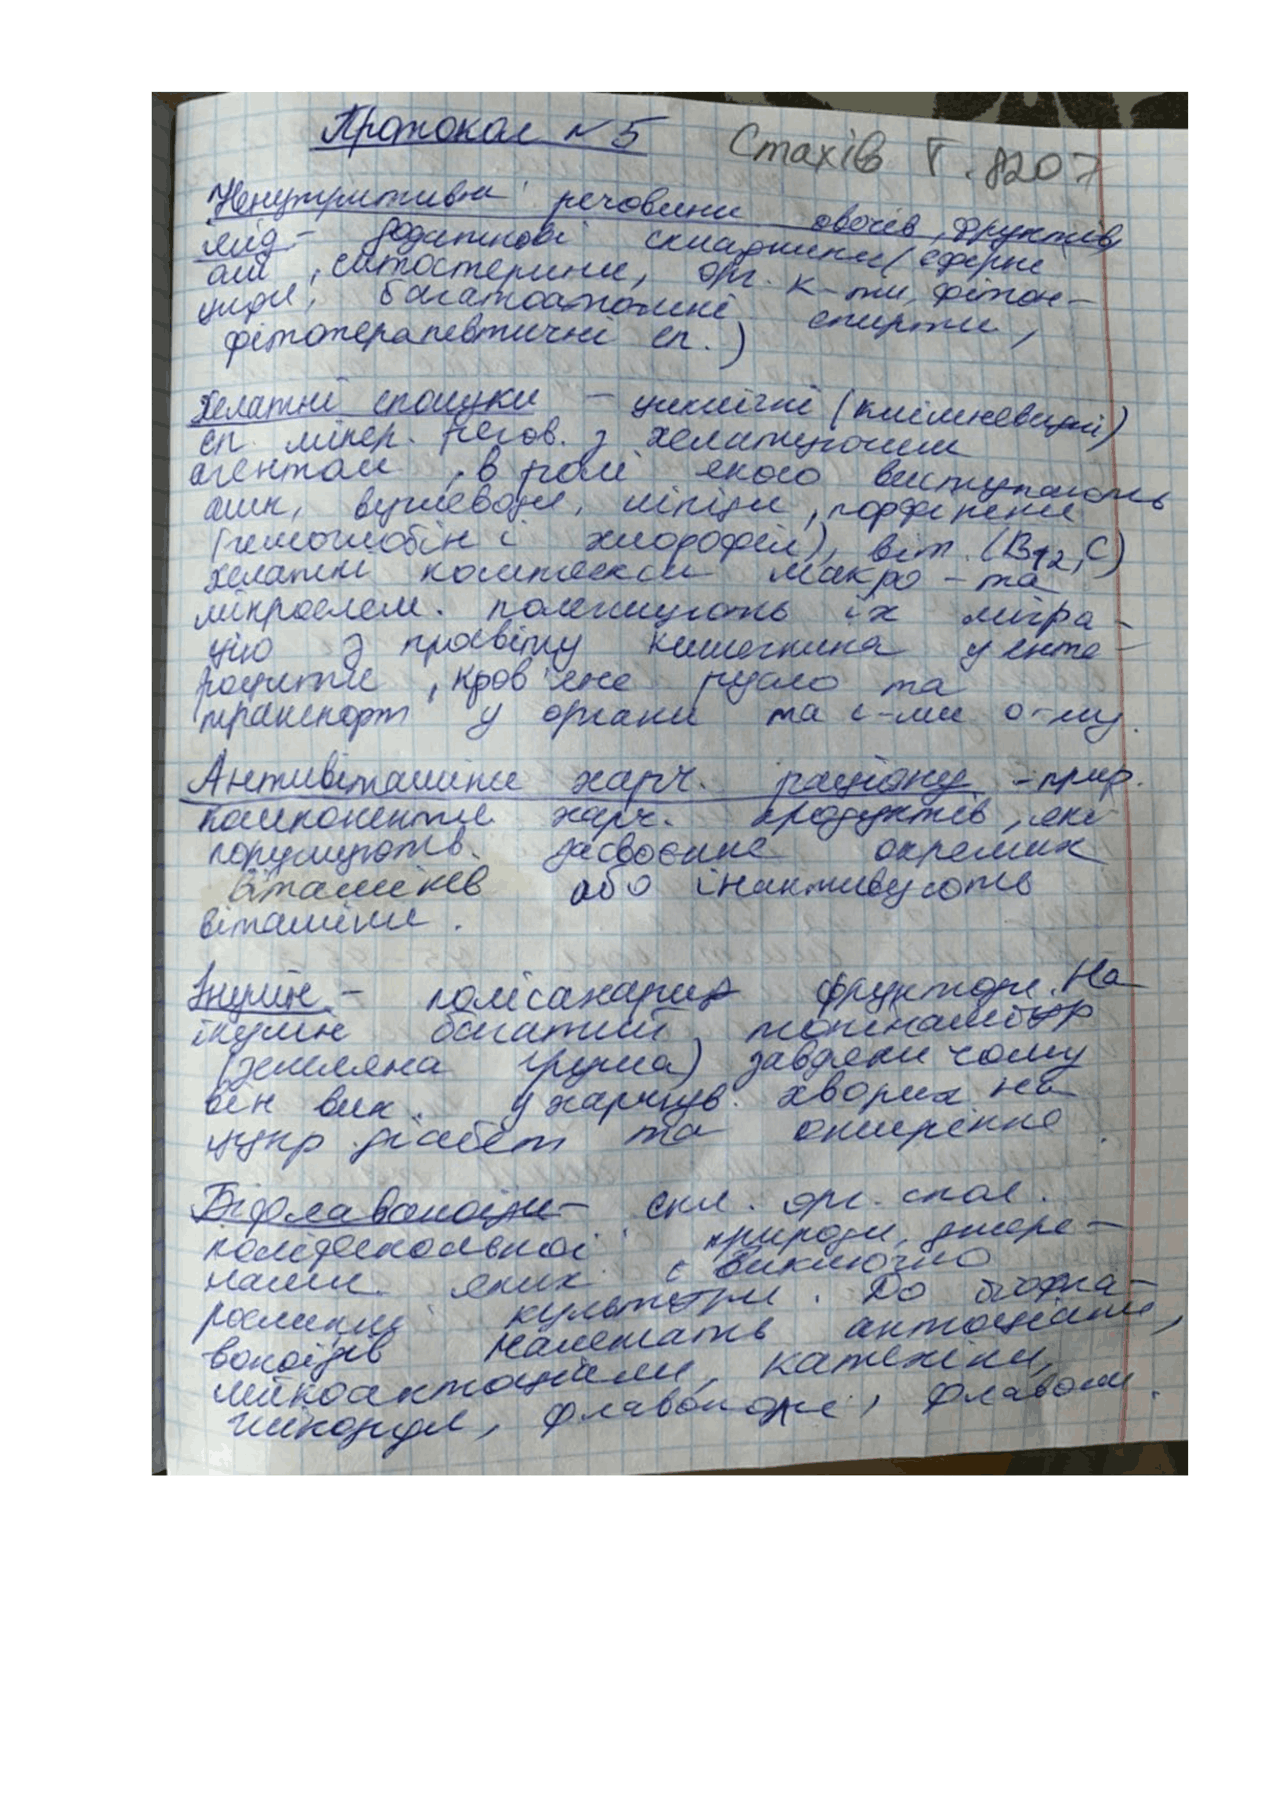 Протокол №5 Стахів Т. 8207
Ненутритивні речовини овочів, фруктів,
ягід - додаткові складники (ефірні
олії, ситостерини, орг. к-ти, фітон-
циди, багатоатомні спирти,
фітотерапевтичні сп.)
Хелатні сполуки - циклічні (клішневидні)
сп. мінер. речов. з хелатуючим
агентом, в ролі якого виступають
амк, вуглеводи, ліпіди, порфірени
(гемоглобін і хлорофіл), віт. (В12, С)
хелатні комплекси макро - та
мікроелем. полегшують їх мігра-
цію з просвіту кишечника у енте-
роцити, кров'яне русло та
транспорт у органи та с-ми о-му.
Антивітаміни харч. раціону - прир.
компоненти харч. продуктів, які
порушують засвоєння окремих
вітамінів або інактивують
вітаміни.
Інулін - полісахарид фруктози. На
інулін багатий топінамбур
(земляна груша) завдяки чому
він вик. у харчув. хворих на
цукр. діабет та ожиріння.
Біофлавоноїди - скл. орг. спол.
поліфенольної природи, джере-
лами яких є виключно
рослинні культури. До біофла-
воноїдів належать антоціани,
лейкоантоціани, катехіни,
флавоноли, флавони.